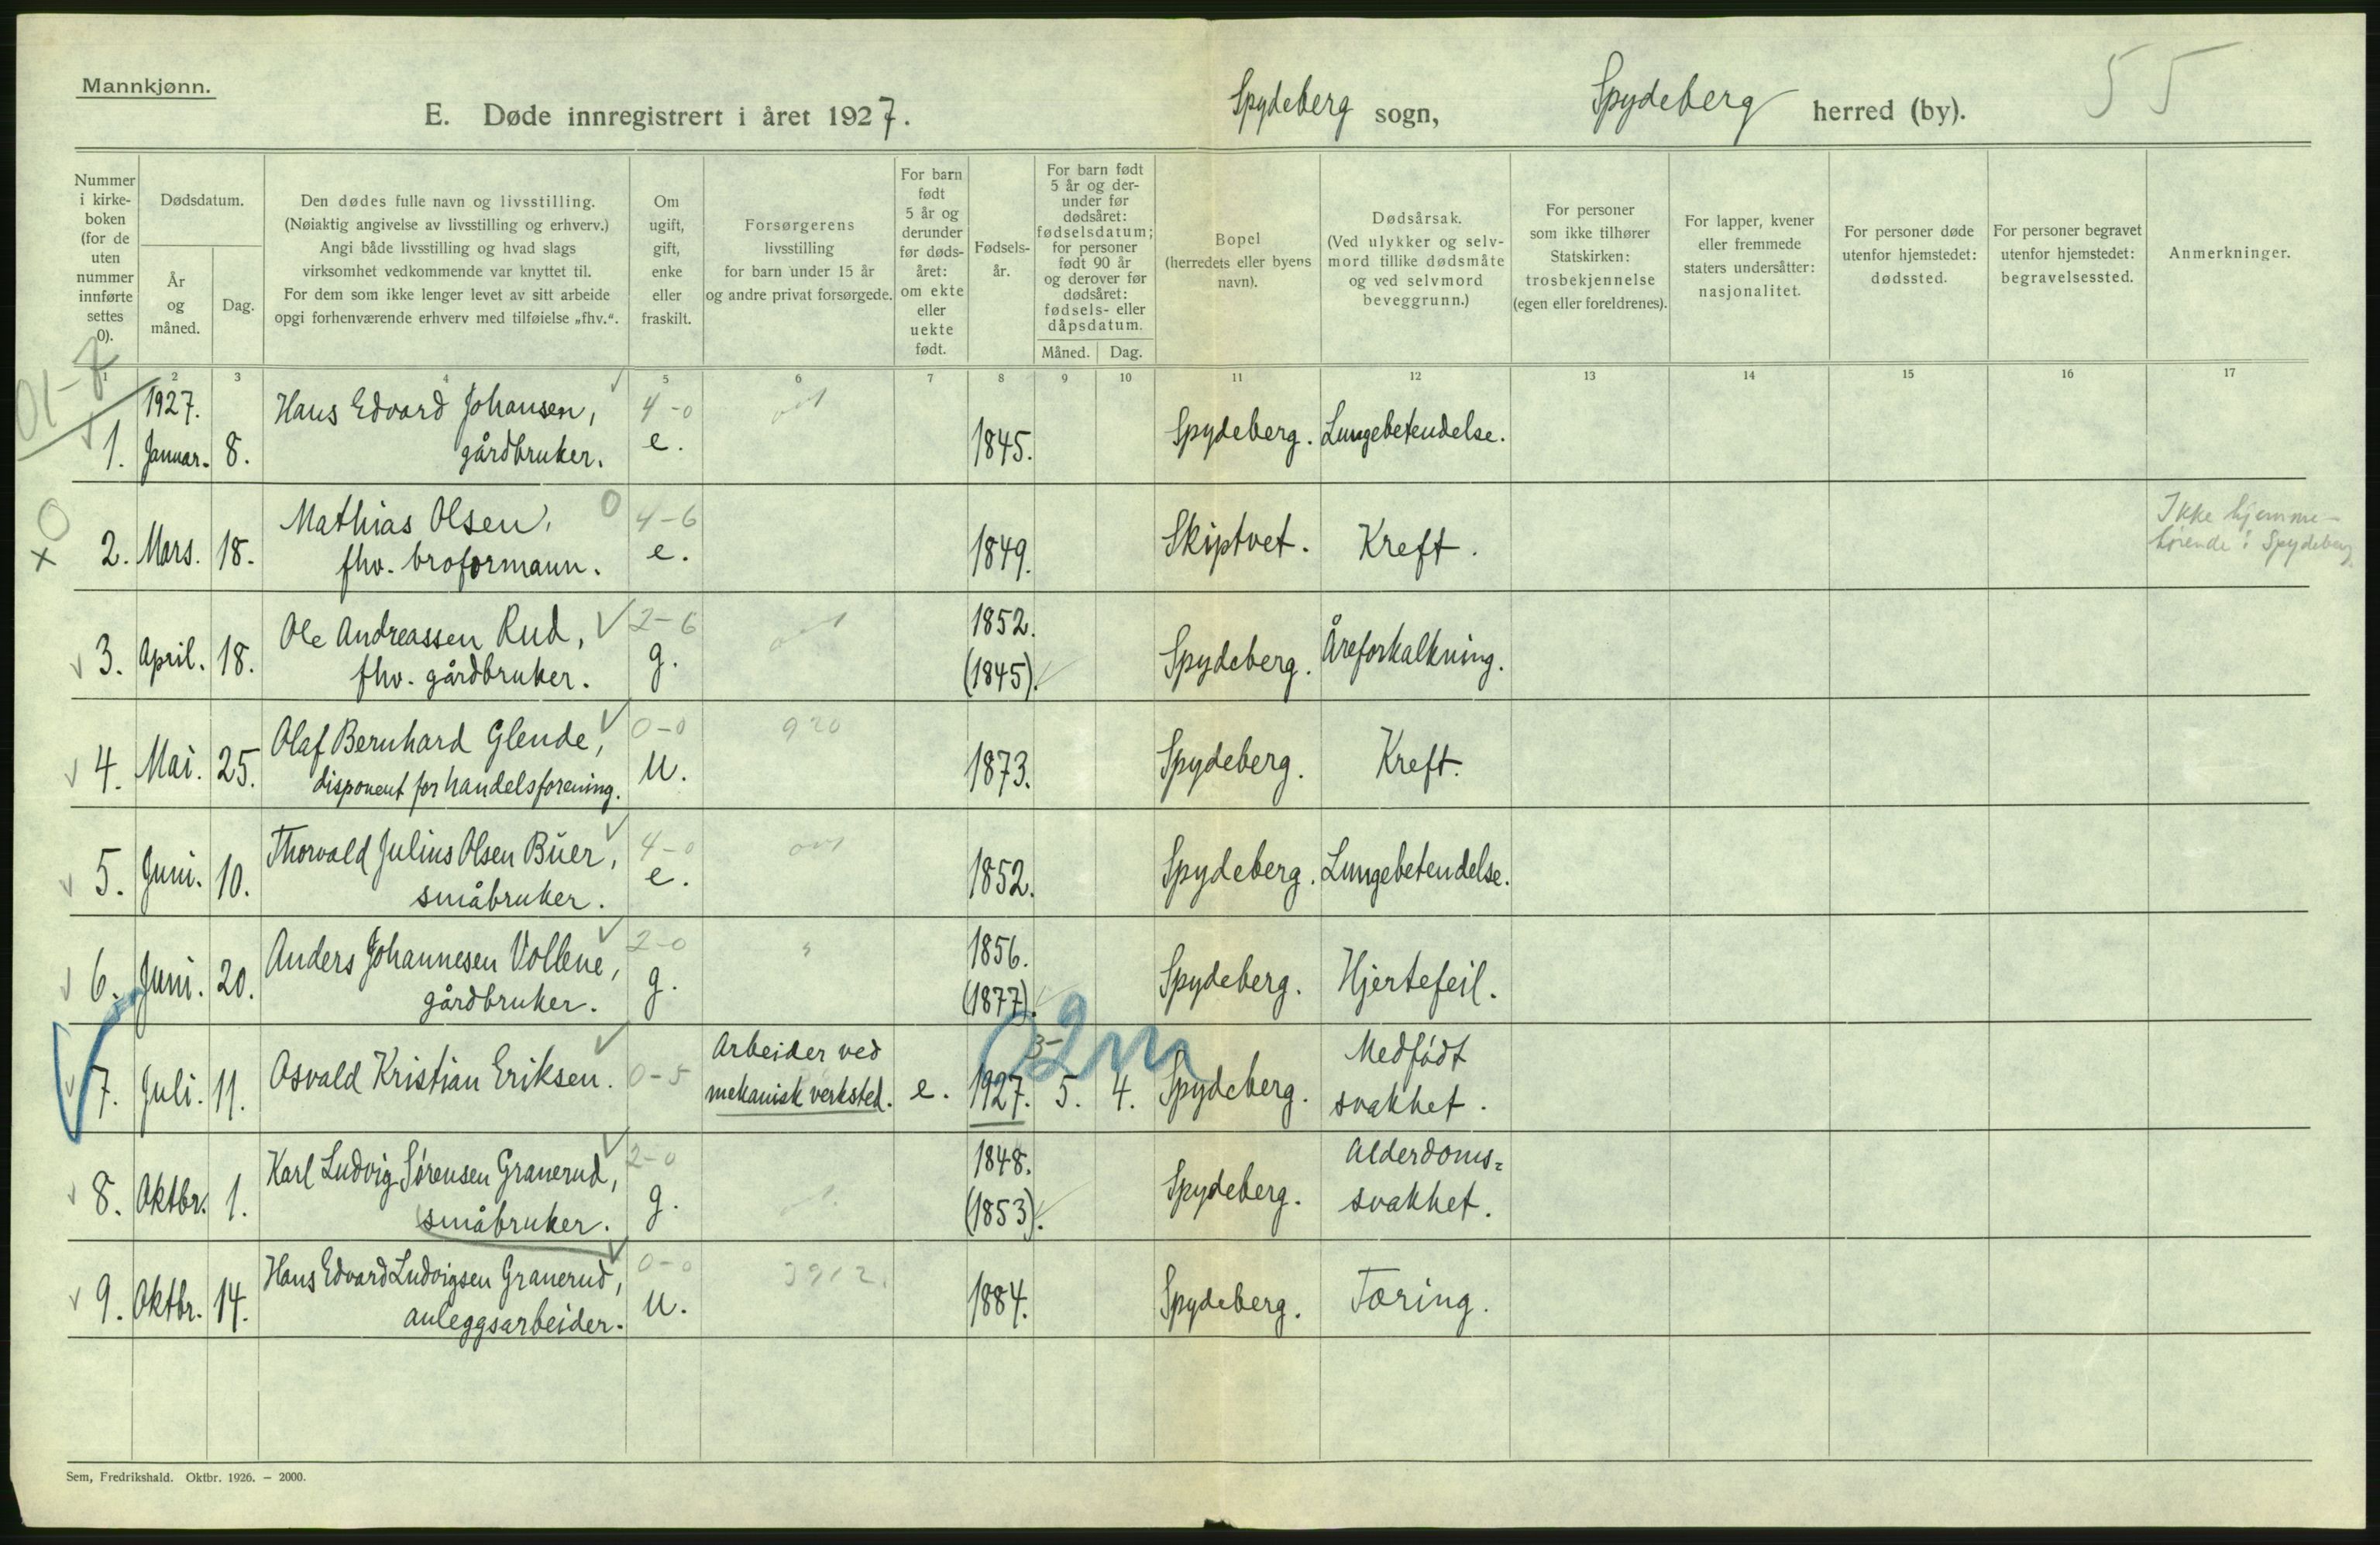 Mannkjønn.
E. Døde innregistrert i året 1927.
Spydeberg sogn, Spydeberg herred (by).
55
Nummer i kirke-boken (for de uten nummer innførte settes 0).
Dødsdatum.
År og måned.
Dag.
Den dødes fulle navn og livsstilling.
(Nøiaktig angivelse av livsstilling og erhverv.)
Angi både livsstilling og hvad slags
virksomhet vedkommende var knyttet til.
For dem som ikke lenger levet av sitt arbeide
opgi forhenværende erhverv med tilføielse „fhv.“.
Om ugift, gift, enke eller fraskilt.
Forsørgerens
livsstilling
for barn under 15 år
og andre privat forsørgede.
For barn født 5 år og derunder før døds-året: om ekte eller uekte født.
Fødsels-år.
For barn født 5 år og der-under før dødsåret: fødselsdatum; for personer født 90 år og derover før dødsåret: fødsels- eller dåpsdatum.
Måned. Dag.
Bopel
(herredets eller byens
navn).
Dødsårsak.
(Ved ulykker og selv-
mord tillike dødsmåte
og ved selvmord
beveggrunn.)
For personer
som ikke tilhører
Statskirken:
trosbekjennelse
(egen eller foreldrenes).
For lapper, kvener
eller fremmede
staters undersåtter:
nasjonalitet.
For personer døde
utenfor hjemstedet:
dødssted.
For personer begravet
utenfor hjemstedet:
begravelsessted.
Anmerkninger.
1 2 3 4 5 6 7 8 9 10 11 12 13 14 15 16 17
1927.
Hans Edvard Johansen, 4-0
1. Januar. 8. gårdbruker. e. 1845. Spydeberg. Lungebetendelse.
0 Mathias Olsen, 0 4-6
x 2. Mars. 18. fhv. broformann. e. 1849. Skiptvet. Kreft. Ikke hjemme-
hørende i Spydeberg
Ole Andreassen Rud, 2-6 1852.
3. April. 18. fhv. gårdbruker. g. (1845). Spydeberg. Åreforkalkning.
Olaf Bernhard Glende, 0-0 920
4. Mai. 25. disponent for handelsforening. u. 1873. Spydeberg. Kreft.
Thorvald Julius Olsen Büer, 4-0
5. Juni. 10. småbruker. e. 1852. Spydeberg. Lungebetendelse.
Anders Johannesen Vollene, 2-0 " 1856.
6. Juni. 20. gårdbruker. g. (1877). Spydeberg. Hjertefeil.
Arbeider ved 2m Medfødt
7. Juli. 11. Osvald Kristian Eriksen. 0-5 mekanisk verksted. e. 1927. 5. 4. Spydeberg. svakhet.
Karl Ludvig Sørensen Granerud, 2-0 1848. Alderdoms=
8. Oktbr. 1. småbruker. g. (1853). Spydeberg. svakhet.
Hans Edvard Ludvigsen Granerud, 0-0
9. Oktbr. 14. anleggsarbeider. u. 1884. Spydeberg. Tæring.
Sem, Fredrikshald. Oktbr. 1926. — 2000.